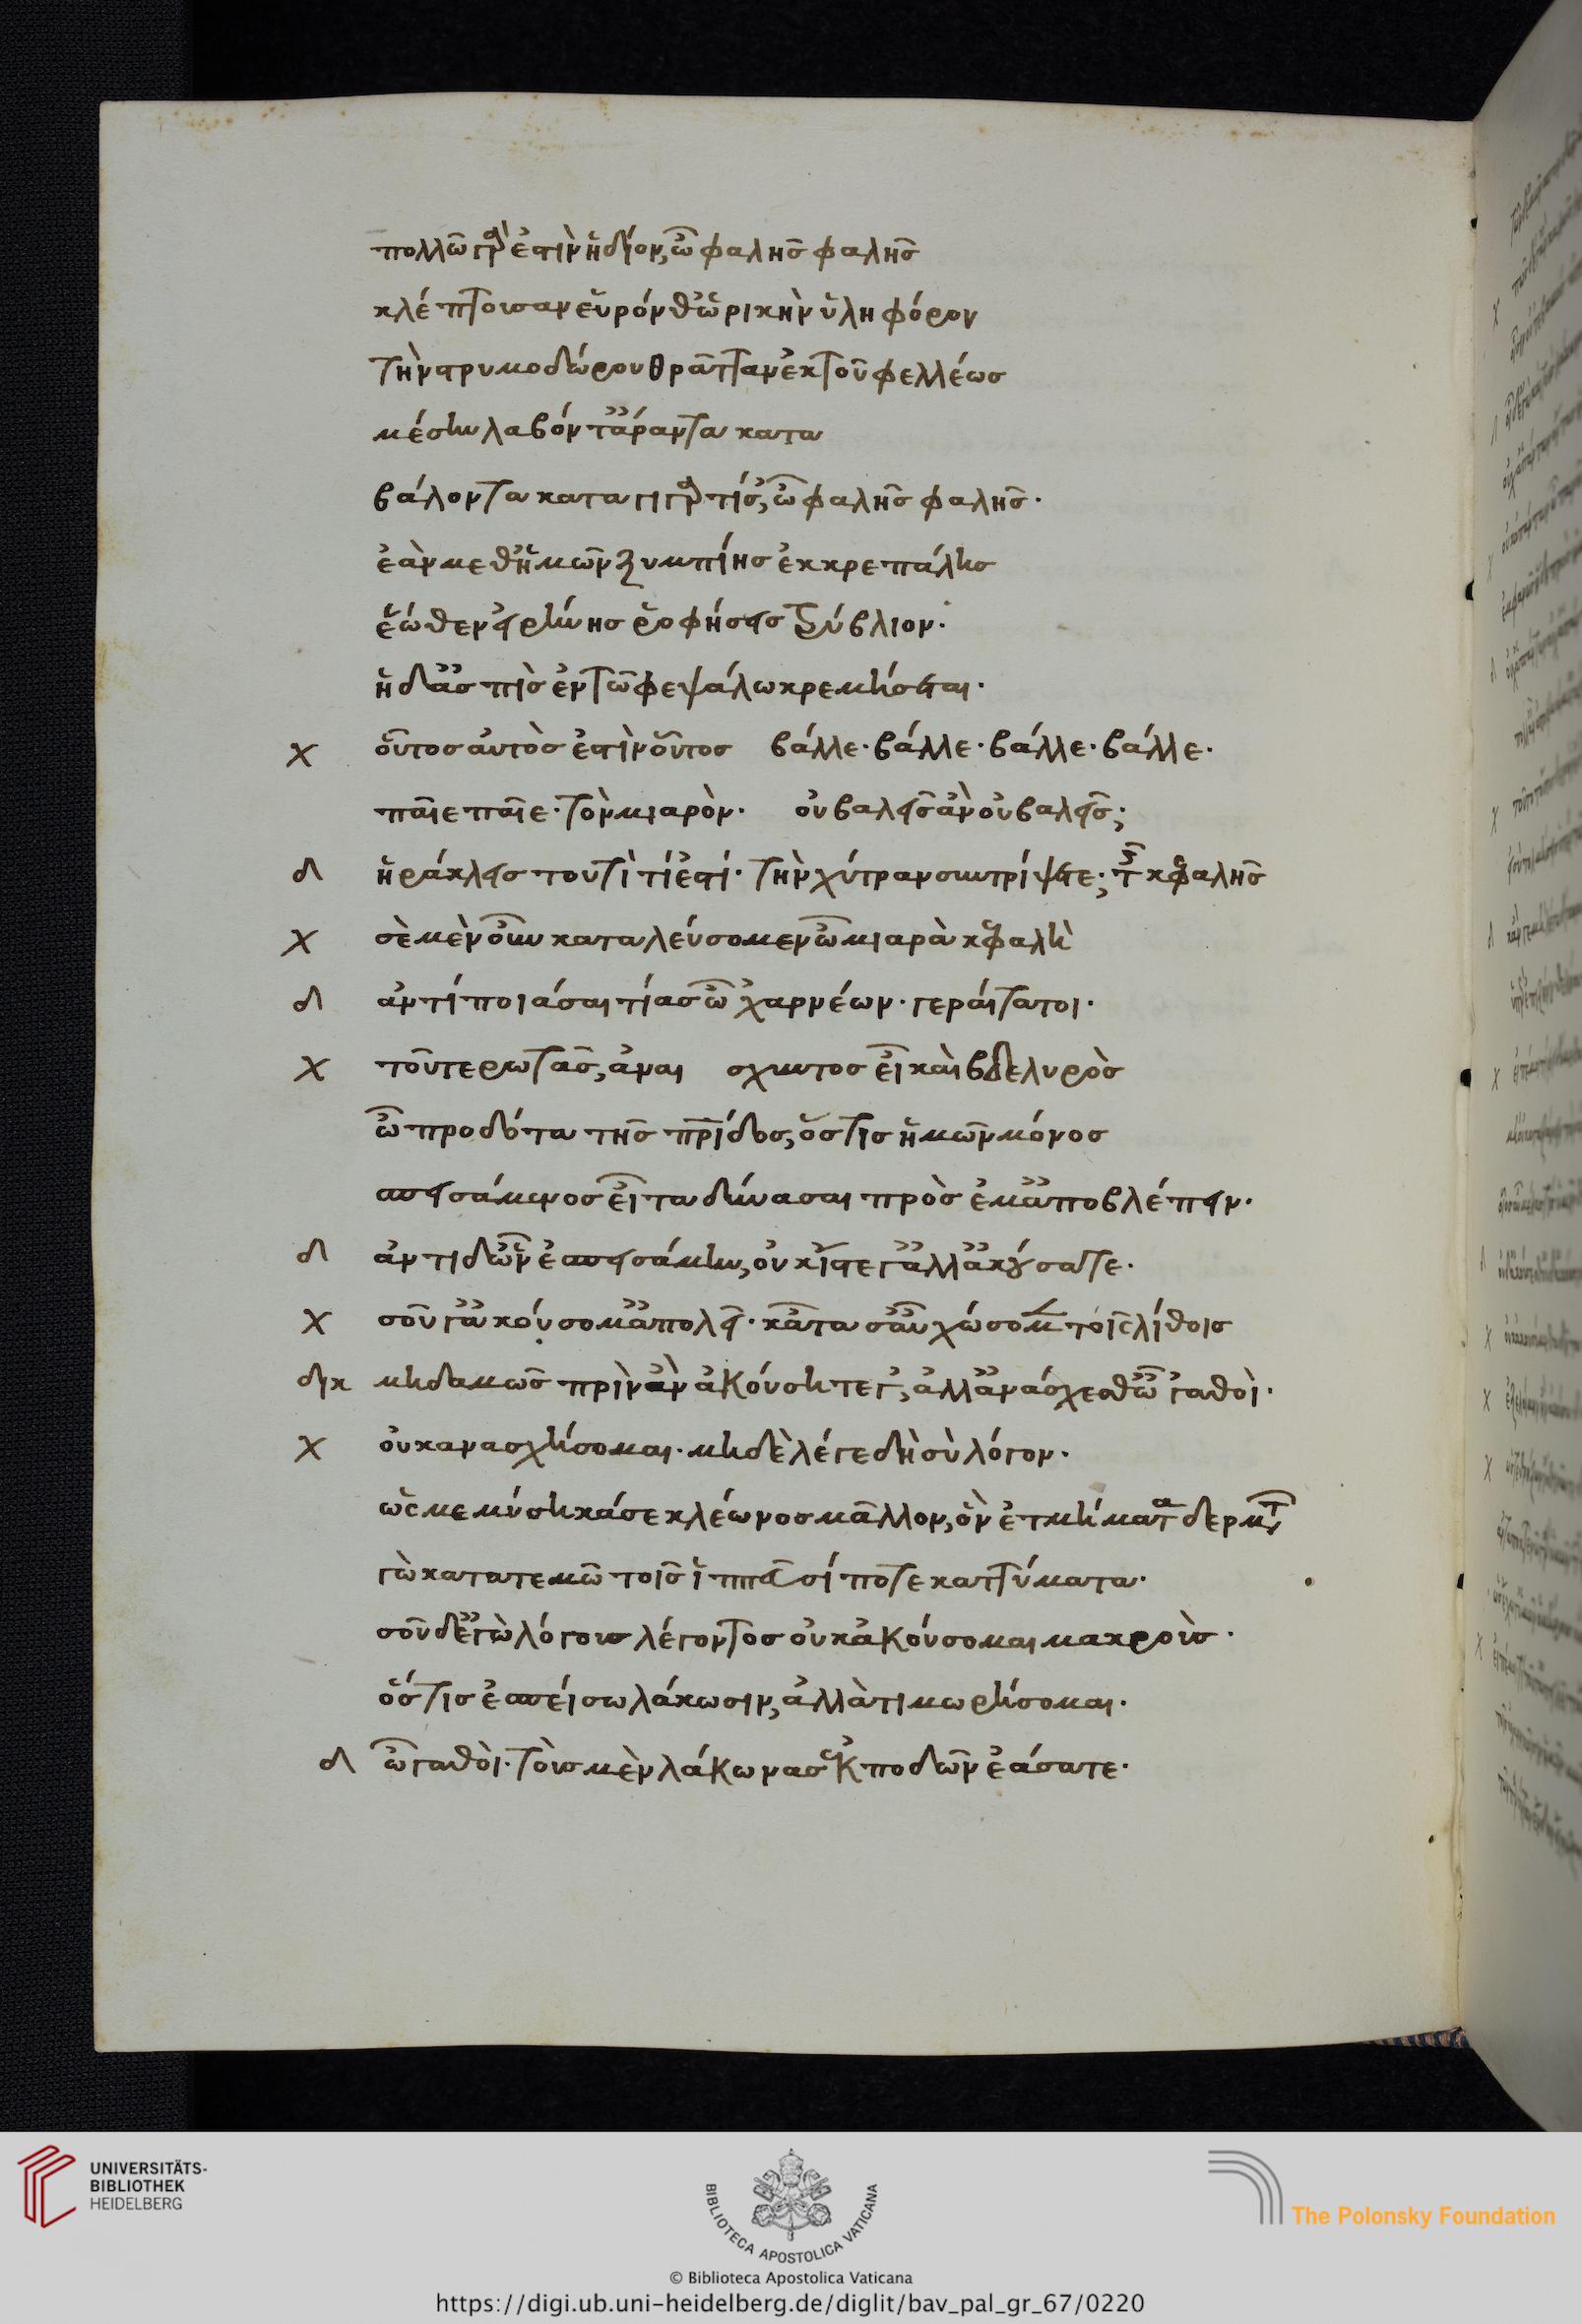 πολλῶ γὰρ ἐστὶν ἥδιον, ὦ φαλῆς φαλῆς
κλέπτουσαν εὑρόνθ' ὡρικὴν ὑληφόρον
τὴν στρυμοδώρου θρᾶτταν ἐκ τοῦ φελλέως
μέσην λαβόντ' ἄραντα κατα
βάλοντα καταγιγαρτίσ', ὦ φαλῆς φαλῆς·
ἐὰν μεθ' ἡμῶν ξυμπίης ἐκ κρεπάλης
ἕωθεν εἰρήνης ῥοφήσεις τρύβλιον·
ἡ δ' ἀσπὶς ἐν τῶ φεψάλω κρεμήσεται·
χ οὗτος αὐτός ἐστιν οὗτος βάλλε· βάλλε· βάλλε· βάλλε·
παῖε παῖε· τὸν μιαρὸν· οὐ βαλεῖς ἂν οὐ βαλεῖς;
δ ἡράκλεις τουτὶ τί ἐστί· τὴν χύτραν συντρίψετε; τ κεφαλῆς
χ σὲ μὲν οὖν καταλεύσομεν ὦ μιαρὰ κεφαλὴ
δ ἀντὶ ποίας αἰτίας ὦ χαρνέων· γεραίτατοι·
χ τοῦτ' ἐρωτᾶς, ἀναι σχυντος εἶ καὶ βδελυρὸς
ὦ προδότα τῆς πρίδος, ὅστις ἡμῶν μόνος
σπεισάμενος εἶτα δύνασαι πρὸς ἔμ' ἀποβλέπειν·
δ ἀντὶ δ' ὧν ἐσπεισάμην, οὐκ ἴστε γ' ἀλλ' ἀκούσατε·
χ σοῦ γ' ἀκούσομ' ἀπολεῖ· κᾆτα σ' ἂν χώσομεν τοῖς λίθοις
δικ μηδαμῶς πρὶν ἂν ἀκούσητέ γ', ἀλλ' ἀνάσχεσθ' ὦ 'γαθοὶ·
χ οὐκ ἀνασχήσομαι· μηδὲ λέγε δὴ σὺ λόγον·
ὡς μεμύσηκά σε κλέωνος μᾶλλον, ὃν ἐτμήματα δερμτ
γὼ κατατεμῶ τοῖς ἱππεῦσί ποτε καττύματα·
σοῦ δ' ἐγὼ λόγους λέγοντος οὐκ ἀκούσομαι μακροὺς·
ὅστις ἐσπείσω λάκωσιν, ἀλλὰ τιμωρήσομαι·
δ ὦ 'γαθοὶ· τοὺς μὲν λάκωνας ἐκποδῶν ἐάσατε·
UNIVERSITÄTS-
BIBLIOTHEK
HEIDELBERG
BIBLIOTECA APOSTOLICA VATICANA
The Polonsky Foundation
© Biblioteca Apostolica Vaticana
https://digi.ub.uni-heidelberg.de/diglit/bav_pal_gr_67/0220